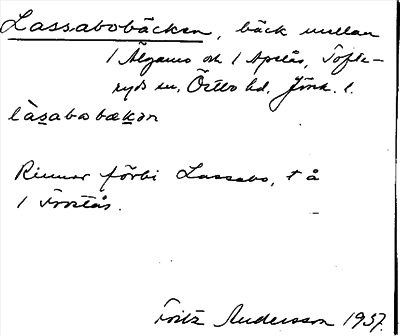 Lassabobäcken, bäck mellan
1 Älgamo och 1 Apelås, Tofte-
ryds sn, Östbo hd, Jönk. l.
làsabobækən
Rinner förbi Lassabo, t å
1 Frostås.
Fritz Andersson 1937.